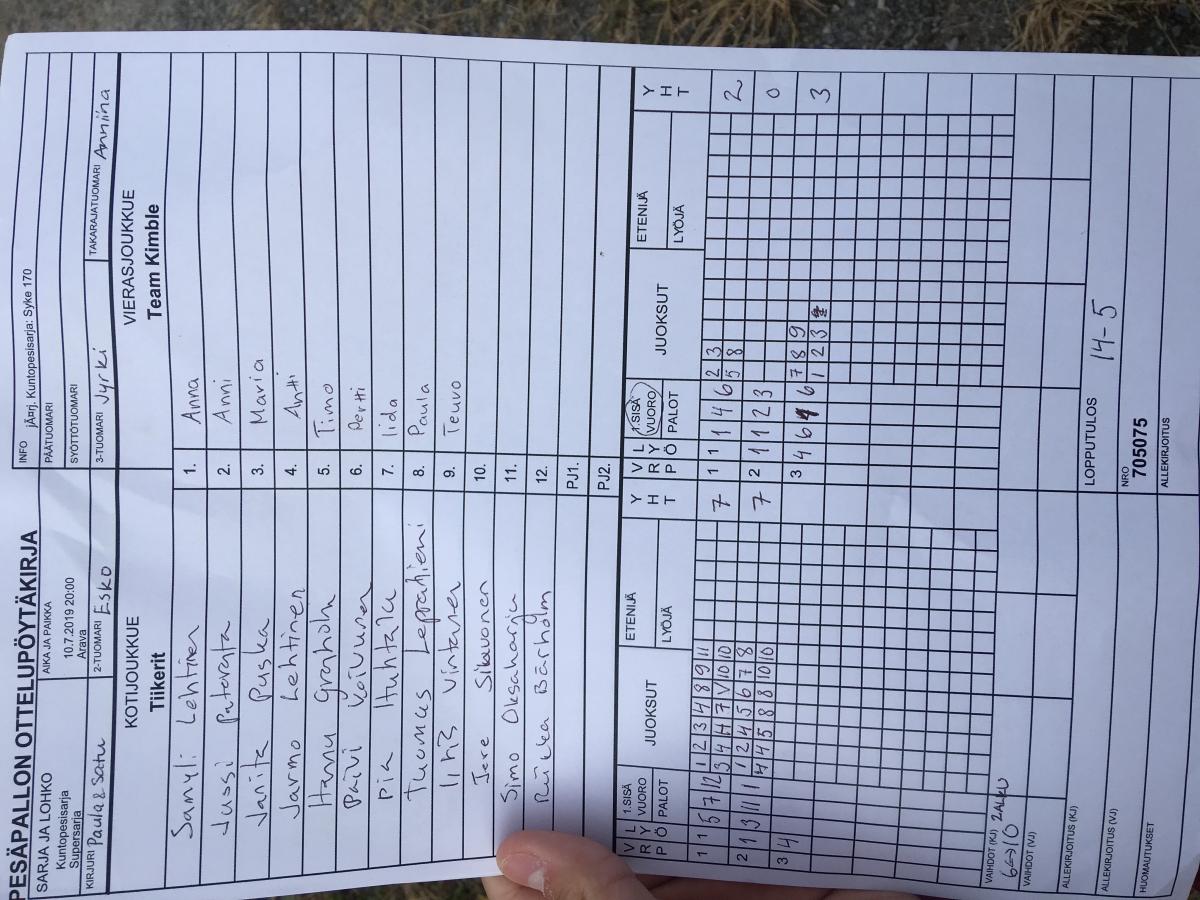 PESÄPALLON OTTELUPÖYTÄKIRJA
INFO
jÃ¤rj. Kuntopesisarja: Syke 170
SARJA JA LOHKO
Kuntopesisarja
Supersarja
AIKA JA PAIKKA
10.7.2019 20:00
Arava
PÄÄTUOMARI
SYÖTTÖTUOMARI
KIRJURI Paula & Satu
2-TUOMARI Esko
3-TUOMARI Jyrki
TAKARAJATUOMARI Anniina
KOTIJOUKKUE
Tiikerit
VIERASJOUKKUE
Team Kimble
Samyli Lehtinen 1. Anna
Jussi Paterata 2. Anni
Janita Puska 3. Maria
Jarmo Lehtinen 4. Antti
Hannu Graholm 5. Timo
Päivi Koivunen 6. Pertti
Pia Huhtala 7. Iida
Tuomas Leprähieni 8. Paula
9. Teuvo
Jere 10.
Simo Oksaharju 11.
Riikka Bärholm 12.
PJ1.
PJ2.
V R Ö L Y P 1.SISÄ VUORO PALOT JUOKSUT ETENIJÄ LYÖJÄ Y H T
V R Ö L Y P 1.SISÄ VUORO PALOT JUOKSUT ETENIJÄ LYÖJÄ Y H T
1 1 5 7 12 1 2 3 4 8 9 11 7
3 4 H 7 V 10 10
2 1 3 11 1 1 2 4 5 6 7 8 7
4 4 5 8 8 10 10
3 4
1 1 1 4 6 2 3 2
5 8
2 1 1 2 3 0
3 4 6 6 7 8 9 3
1 2 3
VAIHDOT (KJ) 2ALKU
6<->10
VAIHDOT (VJ)
ALLEKIRJOITUS (KJ)
LOPPUTULOS 14-5
ALLEKIRJOITUS (VJ)
NRO
705075
HUOMAUTUKSET
ALLEKIRJOITUS